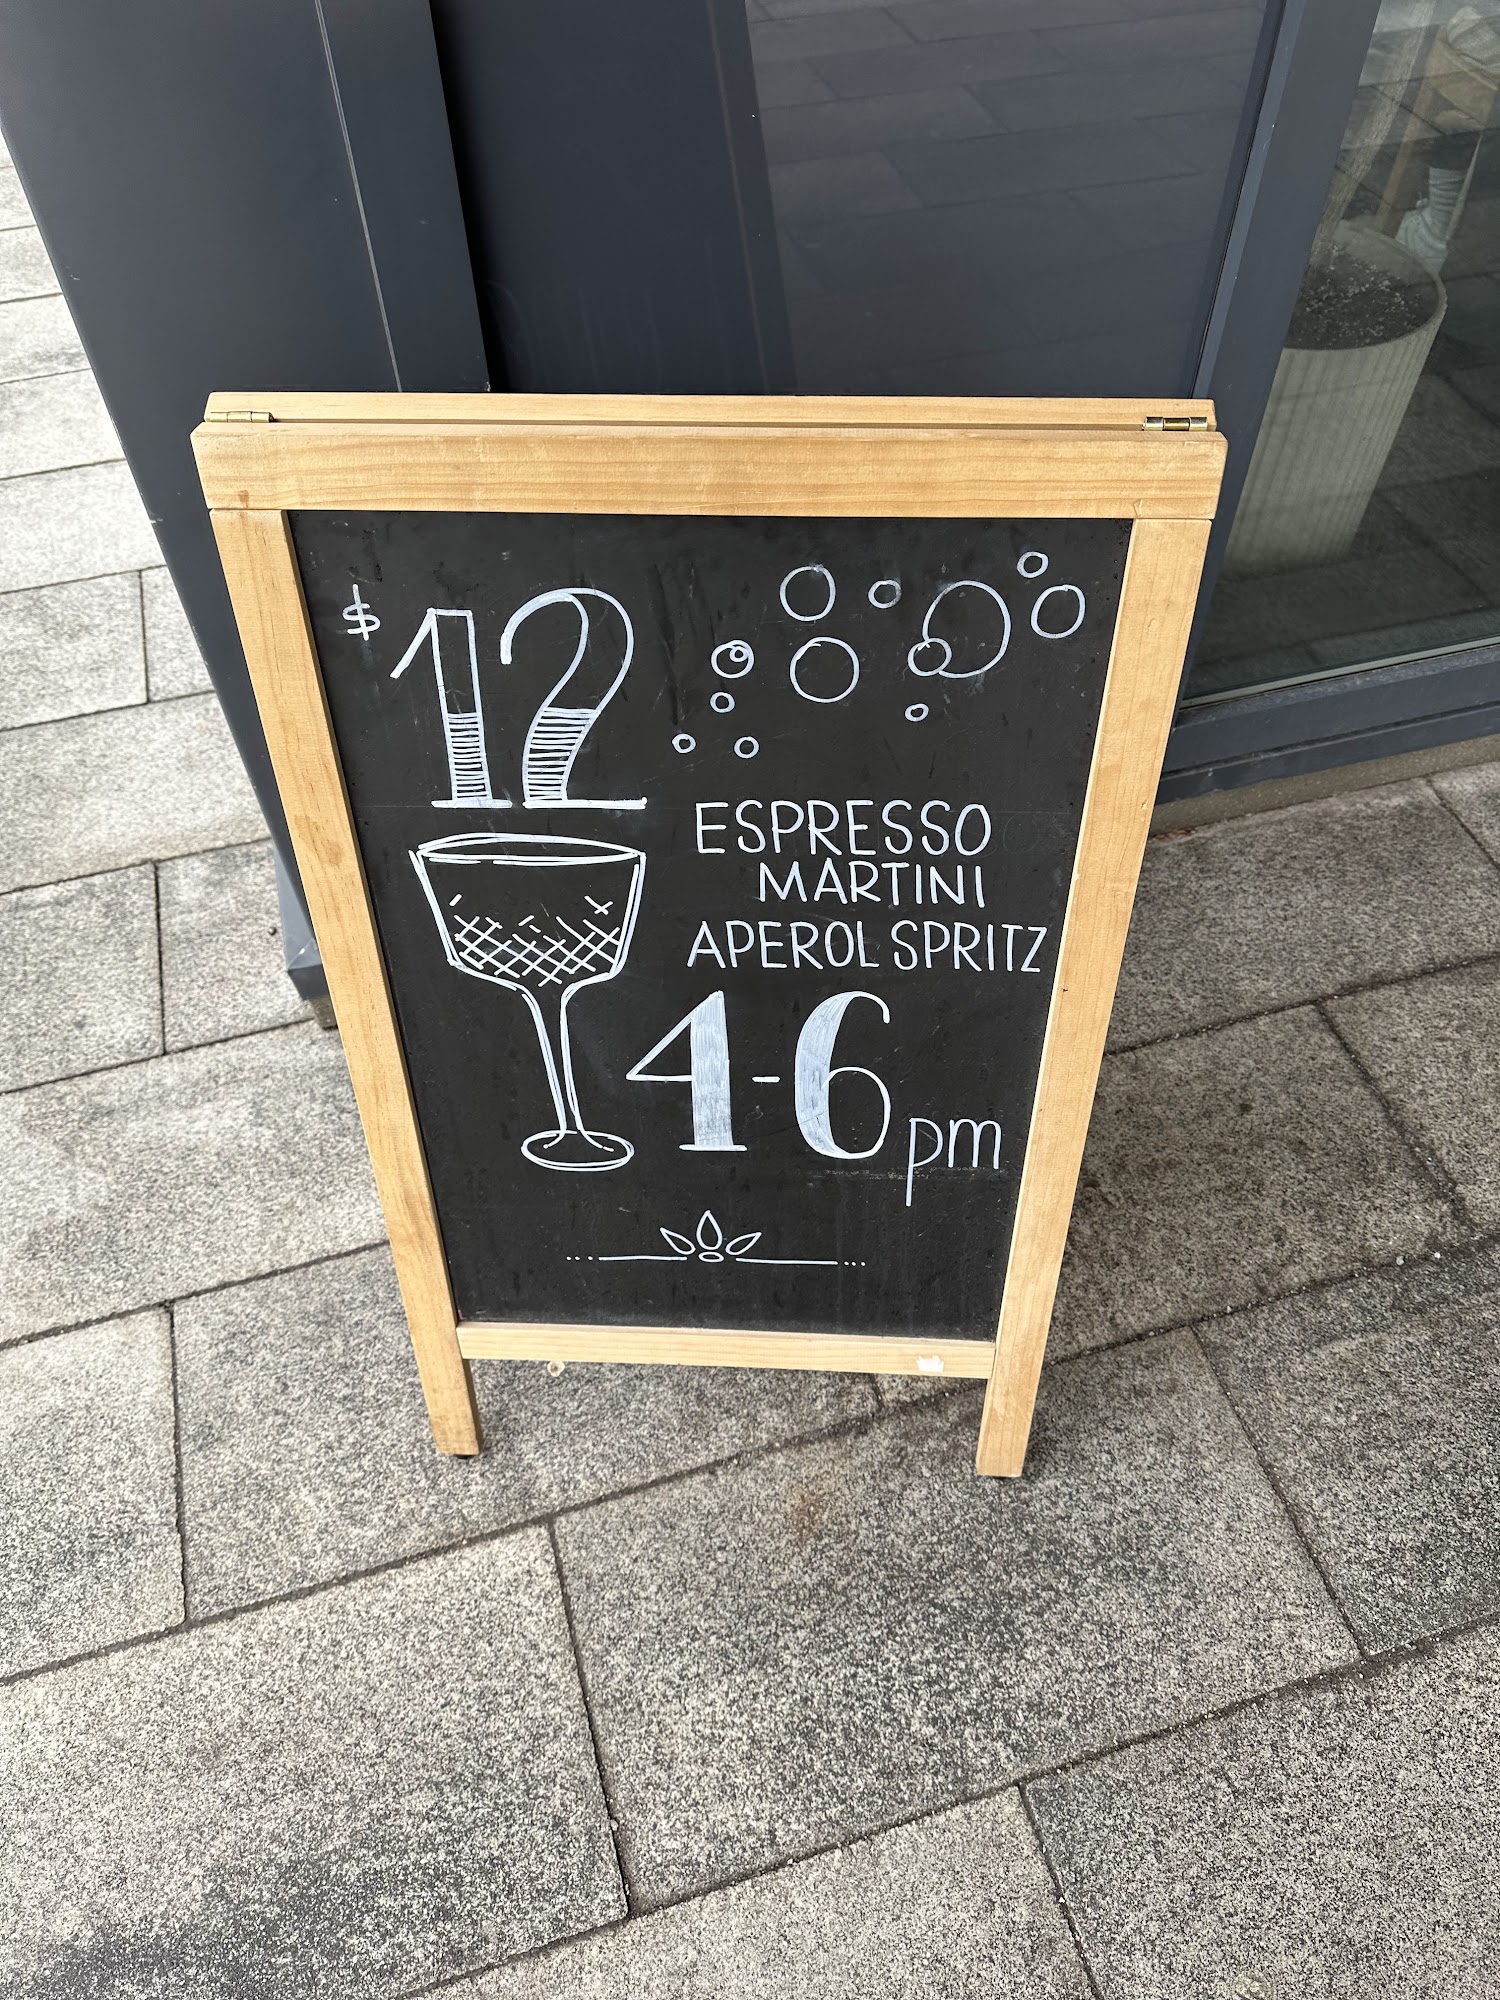 $12
ESPRESSO
MARTINI
APEROL SPRITZ
4-6 pm